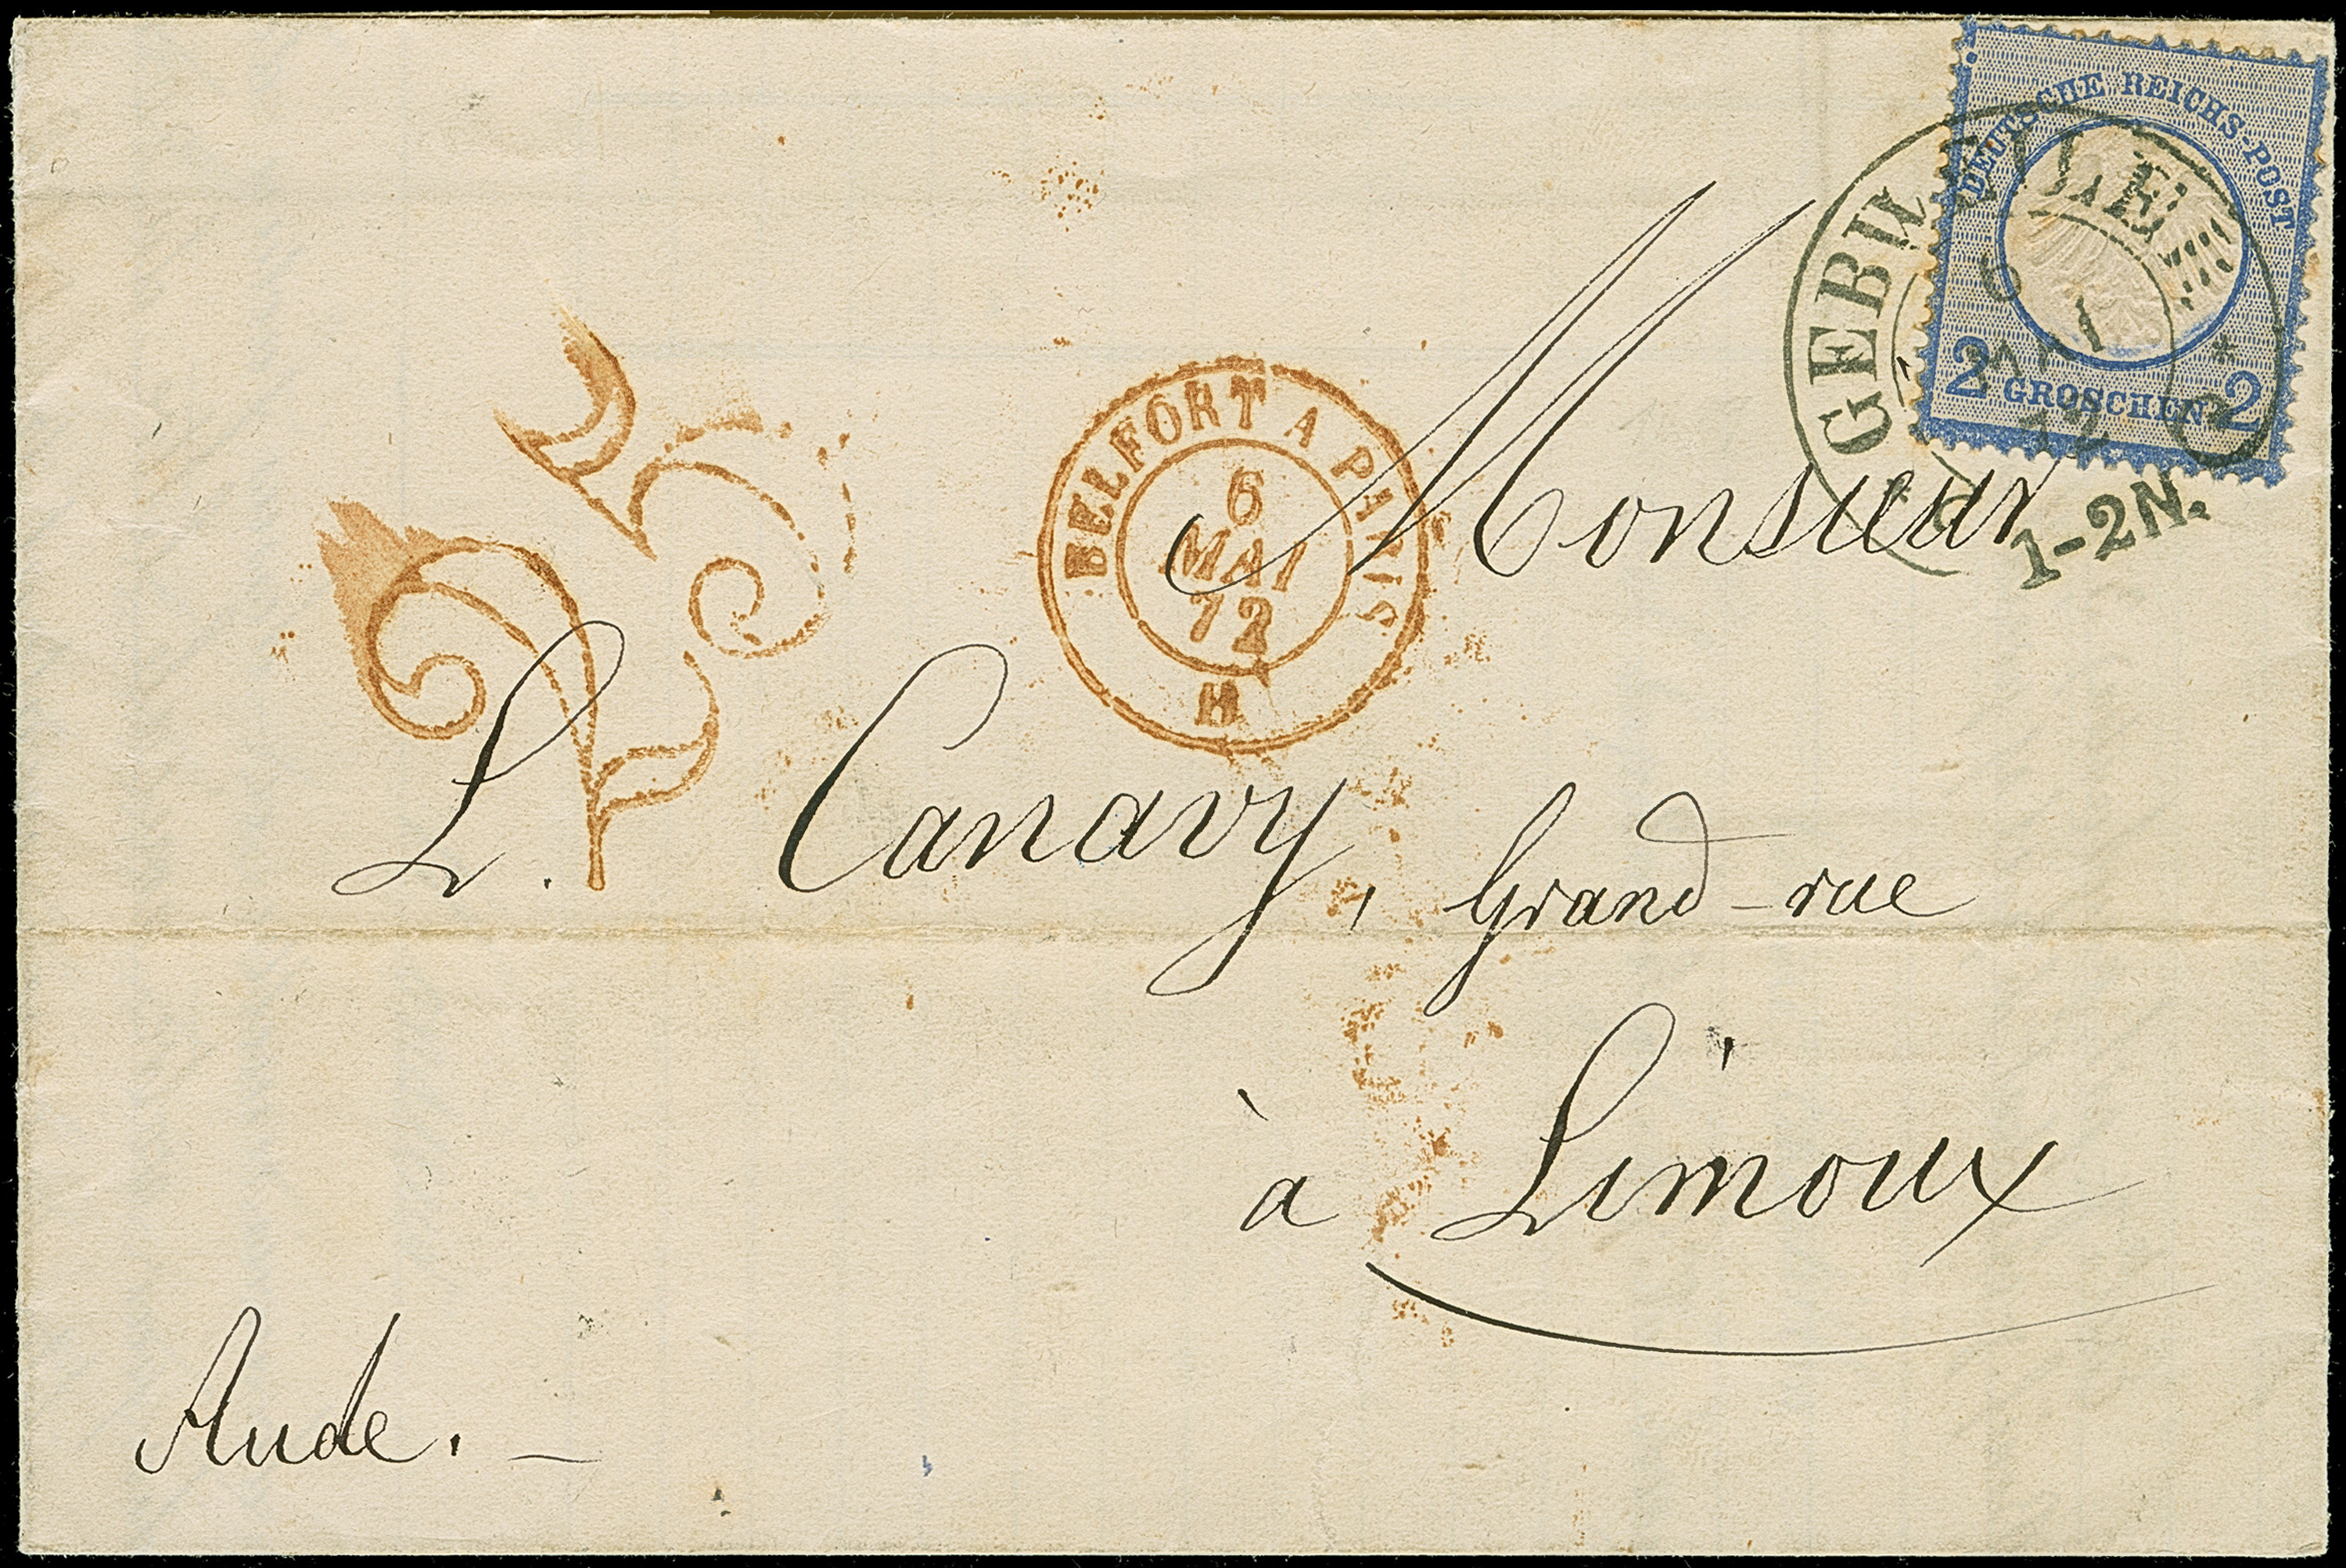 DEUTSCHE REICHS-POST
2 GROSCHEN 2
GEBWEILER
6
MAI
72
1-2N.
BELFORT A PARIS
6
MAI
72
H
25
Monsieur
L. Canavy, Grand-rue
à Limoux
Aude. _